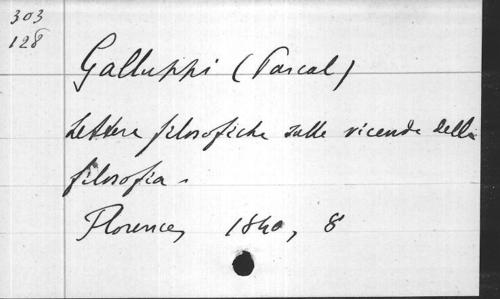 303
128
Galluppi (Pascal)
Lettere filosofiche sulle vicende della
filosofia.
Florence, 1840, 8